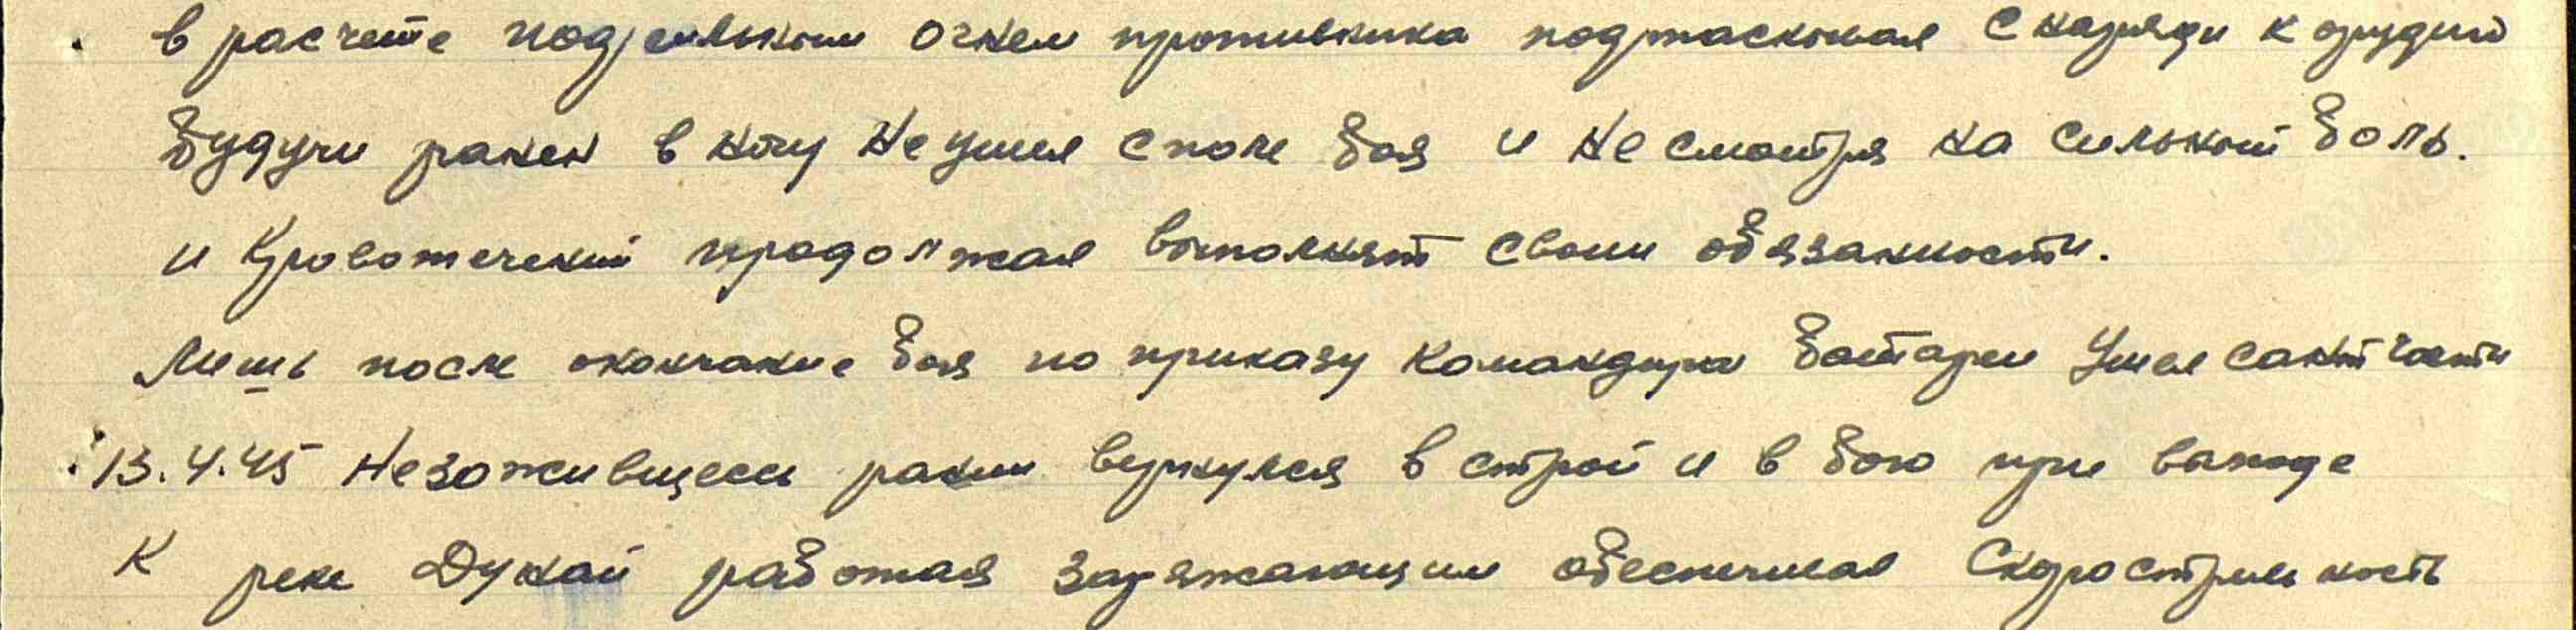 в расчете под сильным огнем противника подтаскивая снаряды к орудию
будучи ранен в ногу не ушел с поле боя и не смотря на сильной боль.
и кровотечений продолжал выполнят свои обязанности.
Лишь после окончание боя по приказу командира батареи ушел санчасти
13.4.45 Незожившеси раны вернулся в строй и в бою при выходе
К реке Дунай работая заряжающим обеспечивал скорострельность